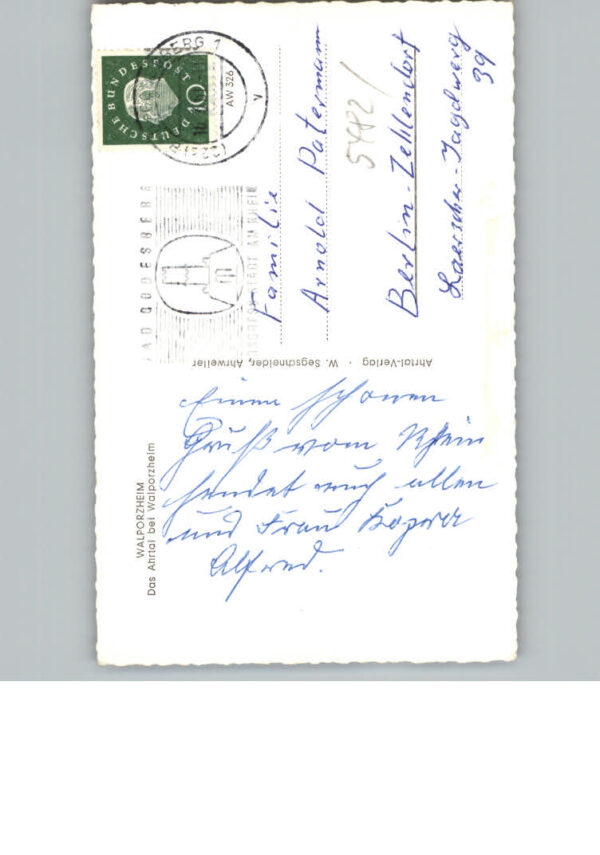 WALPORZHEIM
Das Ahrtal bei Walporzheim
Einen schönen
Gruß vom Rhein
sendet euch allen
und Frau
Alfred.
Ahrtal-Verlag · W. Segschneider, Ahrweiler
DEUTSCHE BUNDESPOST
10
BERG 1
AW 326
BAD GODESBERG
STADT AM RHEIN
5482/
Familie
Arnold Patermann
Berlin-Zehlendorf
39